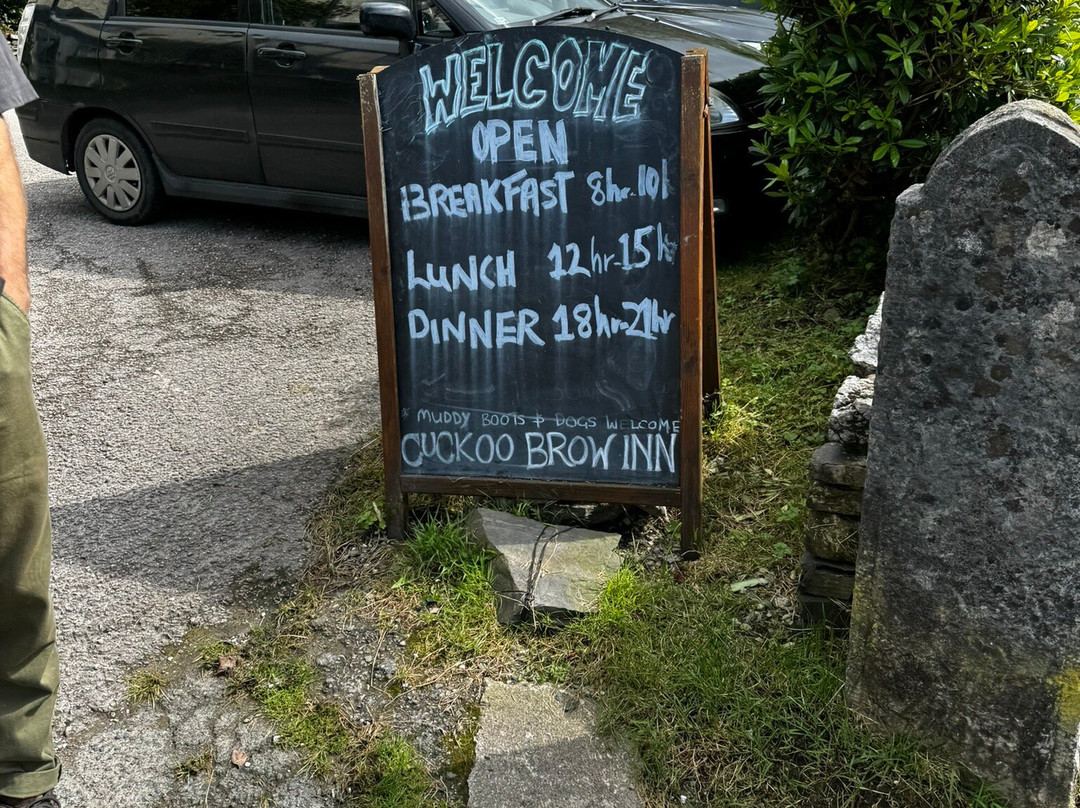 WELCOME
OPEN
BREAKFAST 8hr-10h
LUNCH 12hr-15h
DINNER 18hr-21hr
MUDDY BOOTS & DOGS WELCOME
CUCKOO BROW INN